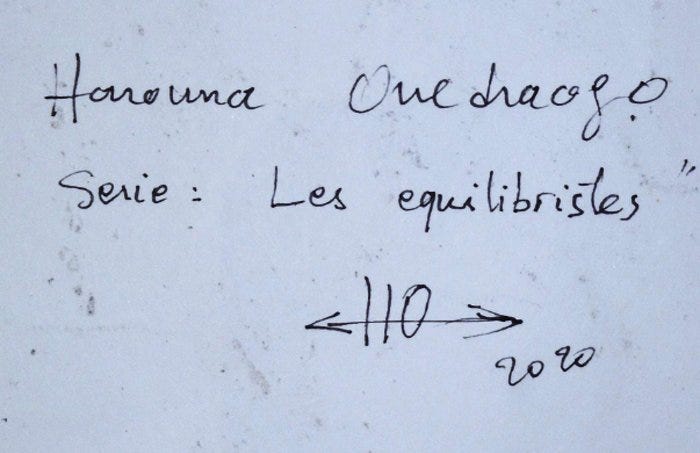 Harouna Ouedraogo
Serie : Les equilibristes "
HO
2020